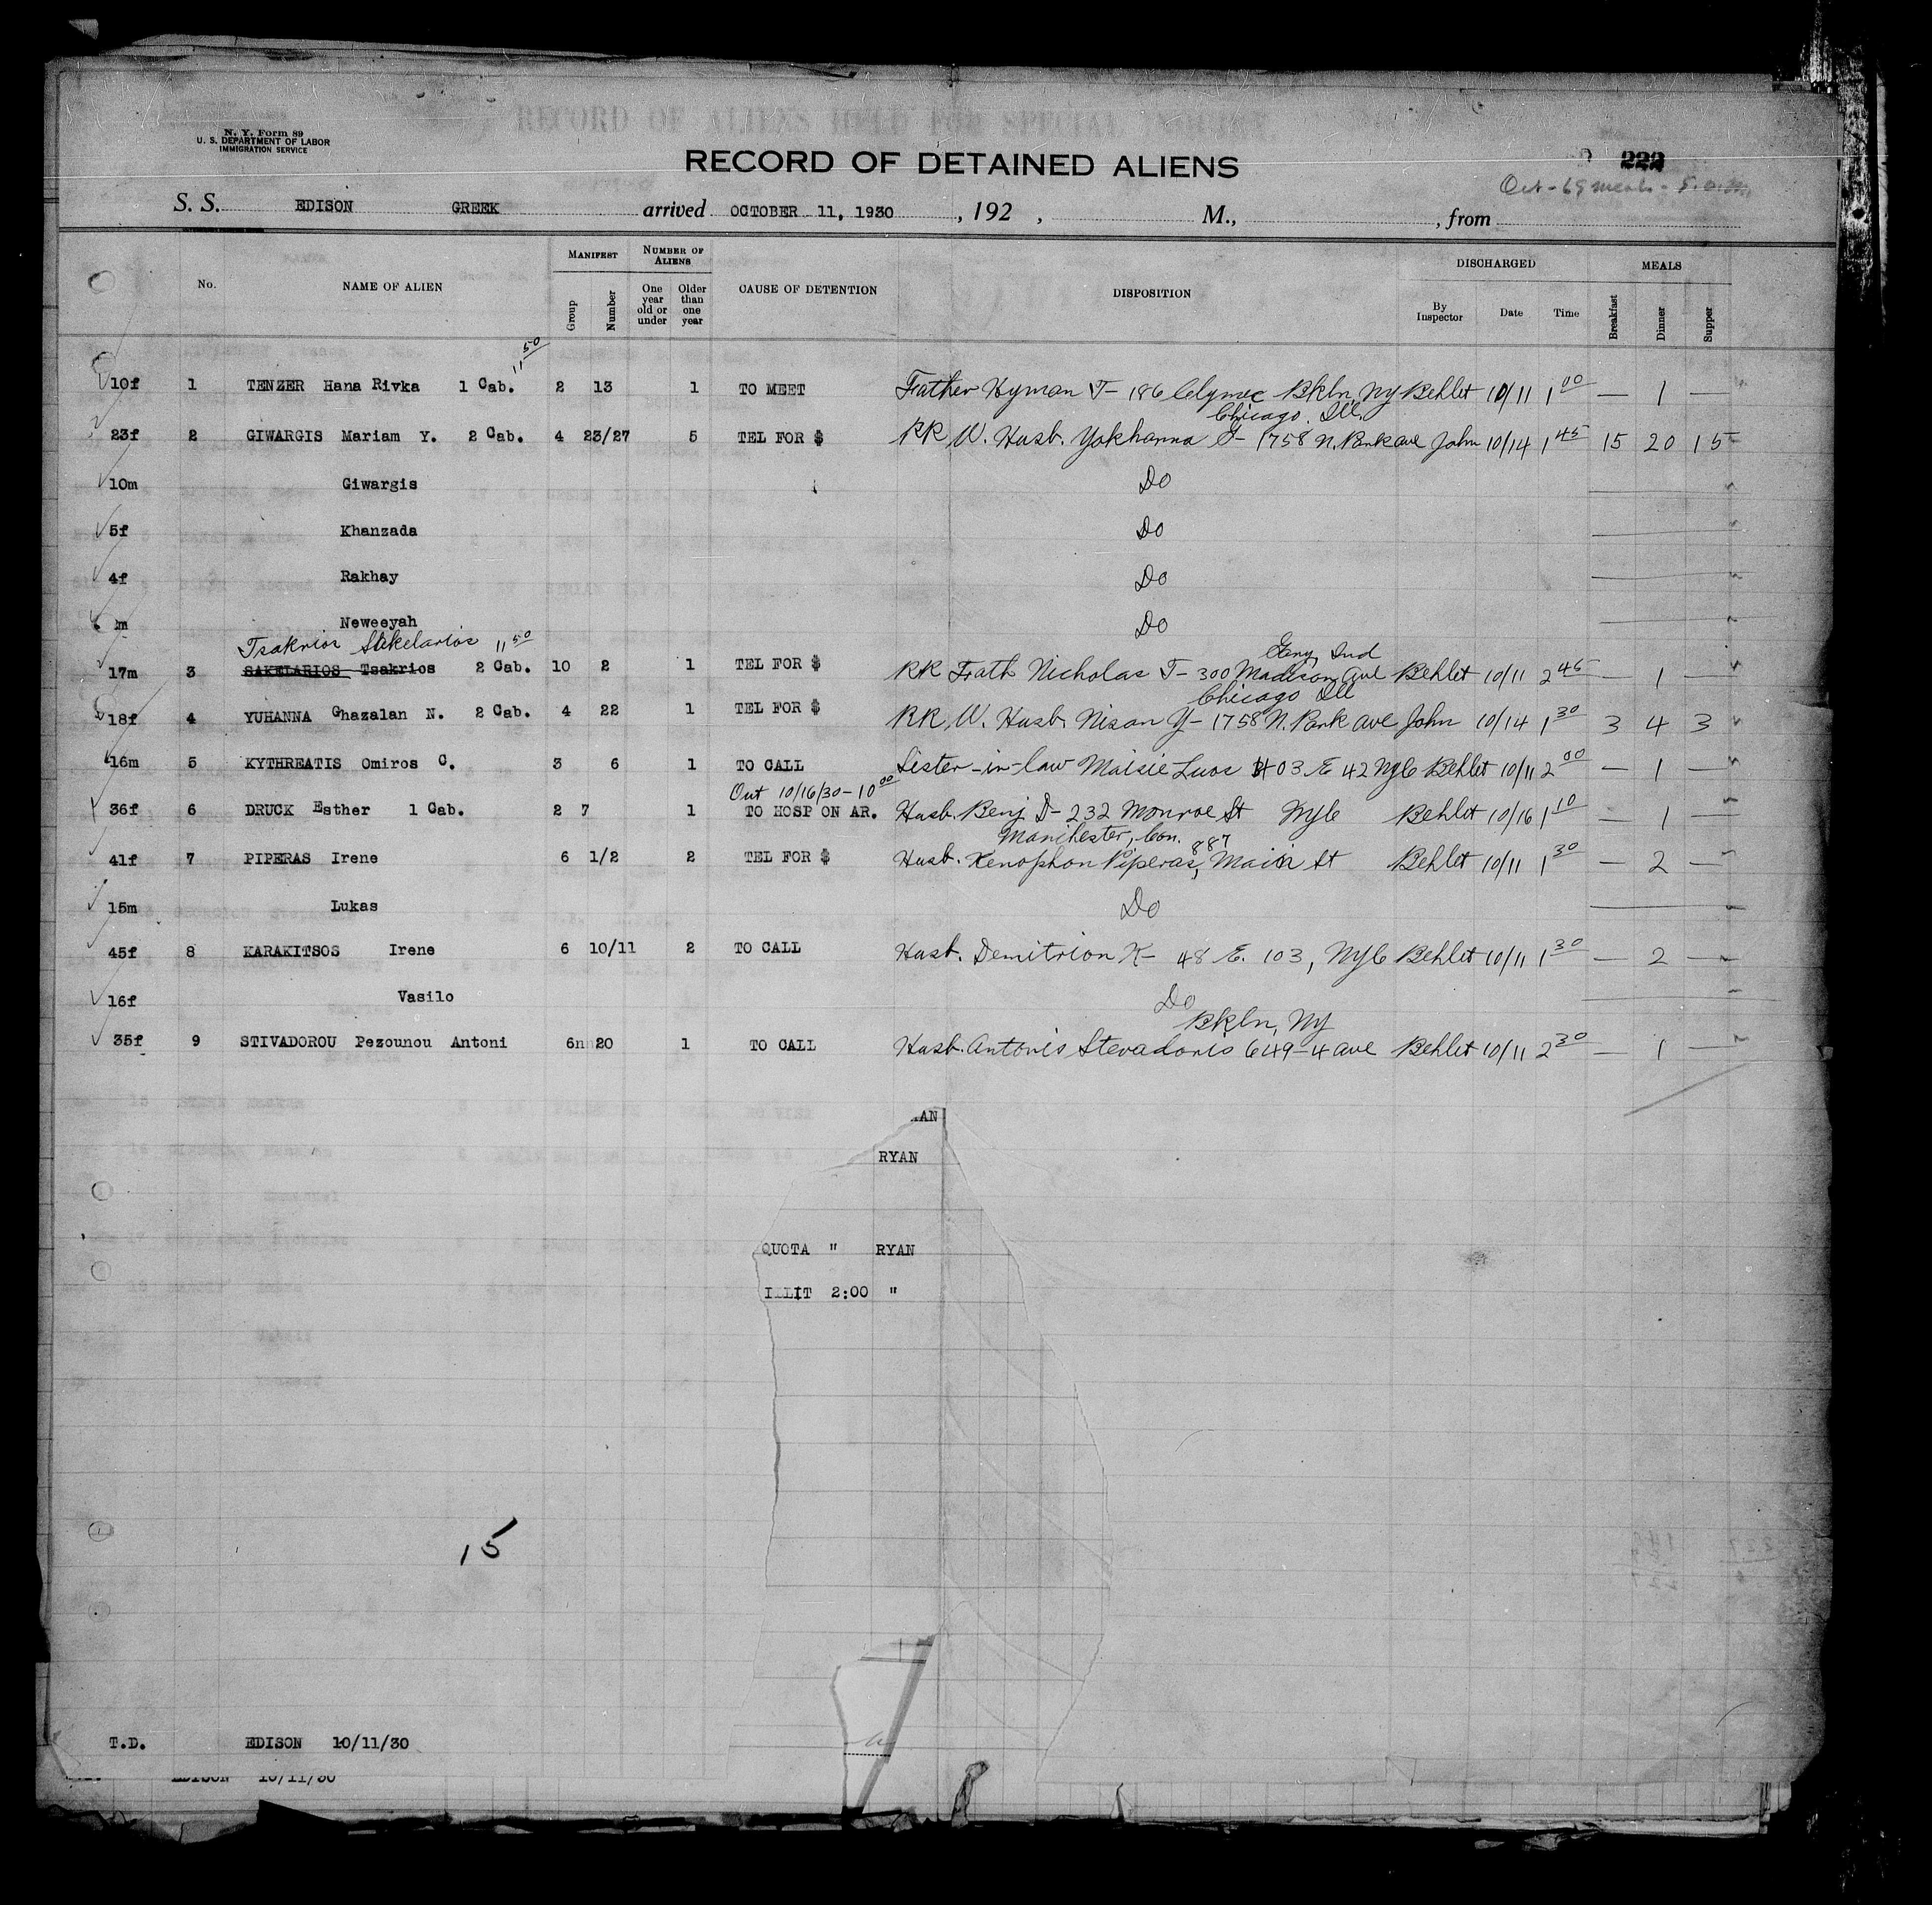 N. Y. Form 89
U. S. DEPARTMENT OF LABOR
IMMIGRATION SERVICE
RECORD OF ALIENS HELD FOR SPECIAL INQUIRY
RECORD OF DETAINED ALIENS
222
Oct - 69 meals -
S. S. EDISON GREEK arrived OCTOBER 11, 1930 , 192 , M., , from
No. NAME OF ALIEN MANIFEST Group Number NUMBER OF ALIENS One year old or under Older than one year CAUSE OF DETENTION DISPOSITION DISCHARGED By Inspector Date Time MEALS Breakfast Dinner Supper
11 50
10f 1 TENZER Hana Rivka 1 Cab. 2 13 1 TO MEET Father Hyman T- 186 Clymer Bkln, Ny Behlet 10/11 1 00 — 1 —
Chicago. Ill.
23f 2 GIWARGIS Mariam Y. 2 Cab. 4 23/27 5 TEL FOR $ RR W. Husb. Yokhanna G- 1758 N. Park ave John 10/14 1 45 15 20 15
10m Giwargis Do
5f Khanzada Do
4f Rakhay Do
m Neweeyah Do
Tsakrios Sakelarios 11 50
Gary, Ind
17m 3 SAKELARIOS Tsakrios 2 Cab. 10 2 1 TEL FOR $ RR Fath Nicholas T- 300 Madison Ave Behlet 10/11 2 45 — 1 —
Chicago Ill
18f 4 YUHANNA Ghazalan N. 2 Cab. 4 22 1 TEL FOR $ RR, W. Husb. Nisan Y- 1758 N. Park ave John 10/14 1 30 3 4 3
16m 5 KYTHREATIS Omiros C. 3 6 1 TO CALL Sister-in-law Maisie Luos 403 E 42 NyC Behlet 10/11 2 00 — 1 —
Out 10/16/30-10 00
36f 6 DRUCK Esther 1 Cab. 2 7 1 TO HOSP ON AR. Husb. Benj D- 232 Monroe St NyC Behlet 10/16 1 10 — 1 —
Manchester, Con.
41f 7 PIPERAS Irene 6 1/2 2 TEL FOR $ Husb. Xenophon Piperas, 887 Main St Behlet 10/11 1 30 — 2 —
15m Lukas Do
45f 8 KARAKITSOS Irene 6 10/11 2 TO CALL Husb. Demitrion K- 48 E. 103, NyC Behlet 10/11 1 30 — 2 —
16f Vasilo Do
Bkln, Ny
35f 9 STIVADOROU Pezounou Antoni 6 20 1 TO CALL Husb. Antonis Stevadoris 649-4 ave Behlet 10/11 2 30 — 1 —
RYAN
QUOTA " RYAN
ILLIT 2:00 "
15
T.D. EDISON 10/11/30
EDISON 10/11/30